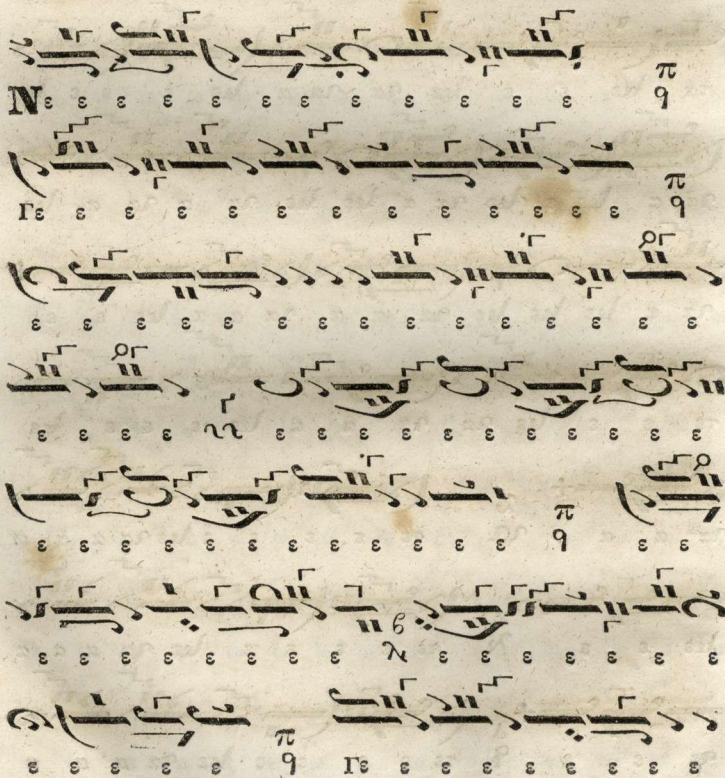 Νε ε ε ε ε ε ε ε ε ε ε ε π q
Γε ε ε ε ε ε ε ε ε ε ε ε ε π q
ε ε ε ε ε ε ε ε ε ε ε ε ε ε ε
ε ε ε ε Γ ε ε ε ε ε ε ε ε ε ε
ε ε ε ε ε ε ε ε ε ε ε π q ε ε ε
ε ε ε ε ε ε ε ε ε λ ε ε ε ε ε ε ε
ε ε ε ε ε ε π q Γε ε ε ε ε ε ε ε ε